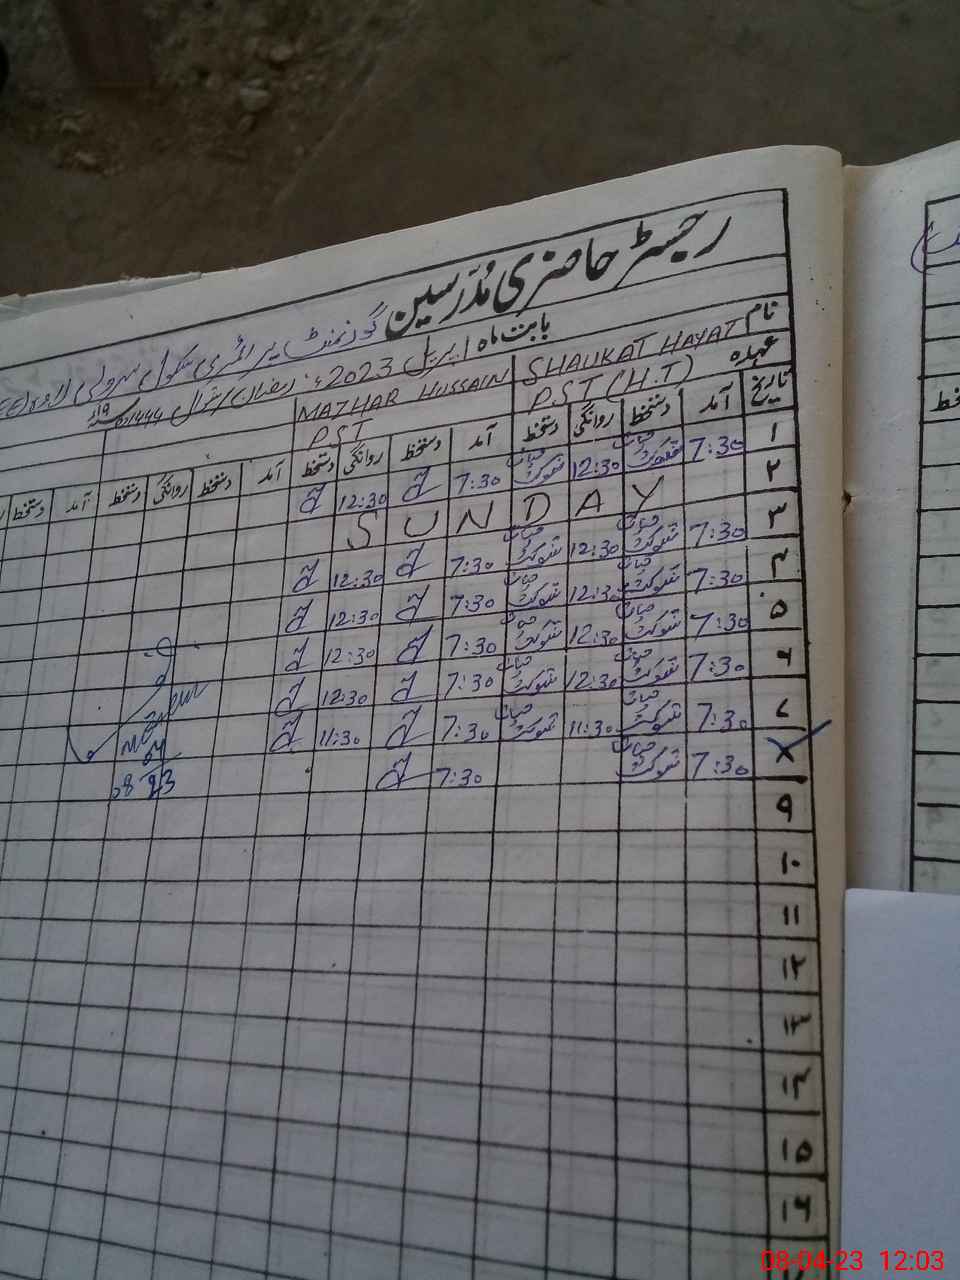 رجسٹر حاضری مُدَرسین گورنمنٹ پرائمری سکول
نام SHAUKAT HAYAT بابت ماہ اپریل 2023ء رمضان/شوال ۱۴۴۴
عہدہ PST (H.T) MAZHAR HUSSAIN
PST
تاریخ آمد دستخط روانگی دستخط آمد دستخط روانگی دستخط آمد دستخط روانگی دستخط آمد دستخط
۱ 7:30 شوکت حیات 12:30 شوکت حیات 7:30 12:30
۲ SUNDAY
۳ 7:30 شوکت حیات 12:30 شوکت حیات 7:30 12:30
۴ 7:30 شوکت حیات 12:30 شوکت حیات 7:30 12:30
۵ 7:30 شوکت حیات 12:30 شوکت حیات 7:30 12:30
۶ 7:30 شوکت حیات 12:30 شوکت حیات 7:30 12:30
۷ 7:30 شوکت حیات 11:30 شوکت حیات 7:30 11:30
۸ 7:30 شوکت حیات 7:30
۹
۱۰
۱۱
۱۲
۱۳
۱۴
۱۵
۱۶
08-04-23 12:03